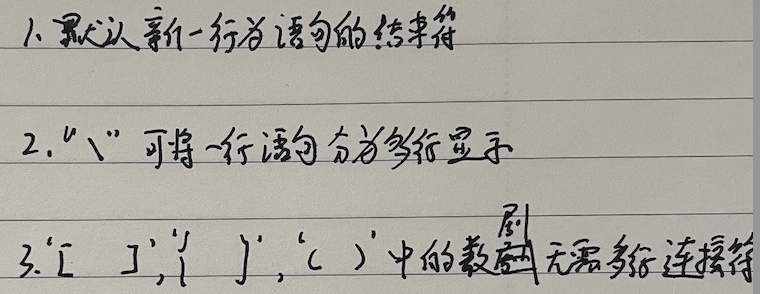 1. 默认新一行为语句的结束符
2. “\” 可将一行语句分为多行显示
3. '[ ]', '{ }', '( )' 中的数 无需多行连接符